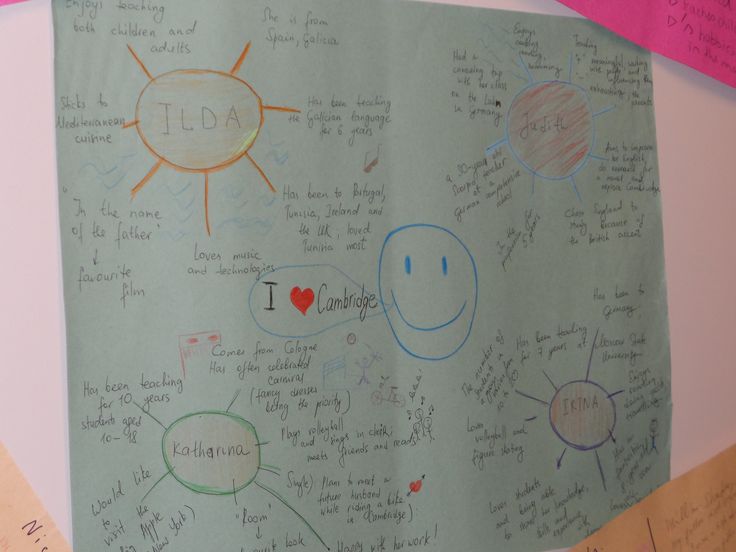 Enjoys teaching
both children and
adults
She is from
Spain, Galicia
Sticks to
Mediterranean
cuisine
ILDA
Has been teaching
the Galician language
for 6 years
"In the name
of the father"
favourite
film
Loves music
and technologies
Has been to Portugal,
Tunisia, Ireland and
the UK; loved
Tunisia most
Enjoys
reading,
swimming
Had a
canoeing trip
with her class
on the
in Germany
Judith
Teaching
parents
Aims to improve
her English,
do research for
a novel and
explore Cambridge
a 30-year old
teacher
at a
German comprehensive
school
In the
profession for
5 years
Chose England to
study because of
the British accent
I ♥ Cambridge
Comes from Cologne
Has often celebrated
carnival
(fancy dresses
being the priority)
Has been teaching
for 10 years
students aged
10-18
Katharina
Plays volleyball
and sings in choir;
meets friends and reads
Single): Plans to meet a
future husband
while riding a bike
in Cambridge):
Would like
to
visit the
Big Apple
(New York)
"Room"
Happy with her work!
Has been to
Germany
Has been teaching
for 7 years at Moscow State
University
The number of
students in
a group
IRINA
Enjoys
reading
travelling
Loves
volleyball and
figure skating
Has a
Loves students
and being able
to share her knowledge,
skills and
experience with
hobbies
in the